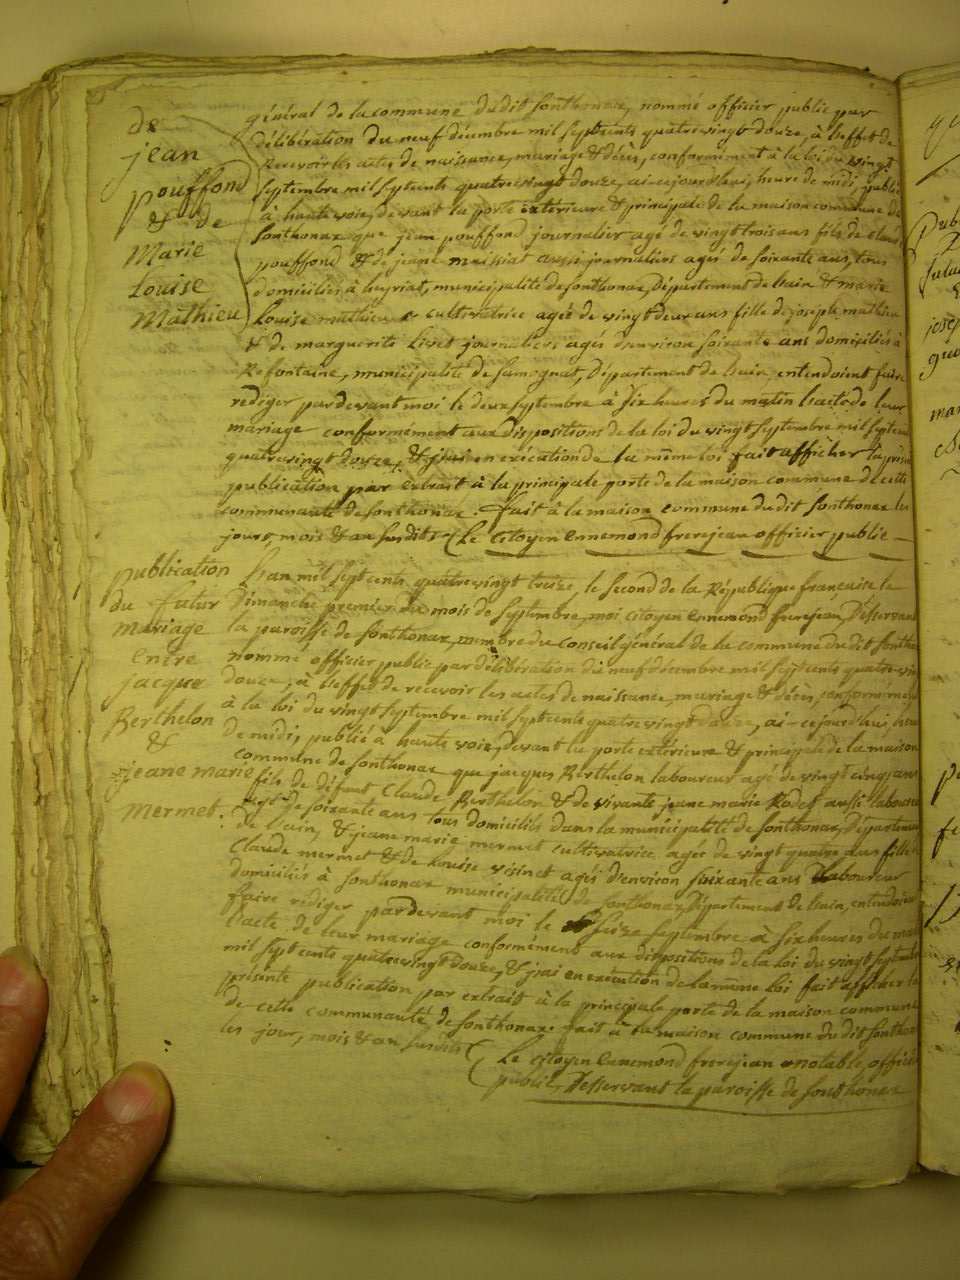 de
jean
pouffond
& de
Marie
Louise
Mathieu
général de la commune dudit sonthonax, nommé officier public par
délibération du neuf décembre mil sept cents quatre vingt douze, à l'effet de
recevoir les actes de naissance, mariage & décès, conformément à la loi du vingt
septembre mil sept cents quatre vingt douze, ai-cejourd'hui, heure de midi, publié
à haute voix, devant la porte exterieure & principale de la maison commune de
sonthonax que jean pouffond journalier agé de vingt trois ans fils de claude
pouffond & de jeane massiat aussi journaliers agés de soixante ans, tous
domiciliés à heyriat, municipalité de sonthonax, Département de l'ain & marie
Louise mathieu cultivatrice agée de vingt deux ans fille de joseph mathieu
& de marguerite Livet journaliers agés d'environ soixante ans domiciliés à
Refontaine, municipalité de samognat, Département de l'ain, entendoient faire
rédiger pardevant moi le deux septembre à six heures du matin l'acte de leur
mariage conformément aux dispositions de la loi du vingt septembre mil sept cents
quatre vingt douze, & j'ai en exécution de la même loi fait afficher la présente
publication par extrait à la principale porte de la maison commune de cette
communauté de sonthonax. fait à la maison commune dudit sonthonax les
jours, mois & an susdits (Le Citoyen ennemond frerejean officier public
publication
du futur
mariage
entre
jacque
Berthelon
&
jeane marie
Mermet.
L'an mil sept cents quatre vingt treize, le second de la République francaise le
Dimanche premier du mois de septembre, moi citoyen ennemond frerejean, Désservant
la paroisse de sonthonax, membre du conseil général de la commune dudit sonthonax
nommé officier public par délibération du neuf décembre mil sept cents quatre vingt
douze, à l'effet de recevoir les actes de naissance, mariage & décès, conformément
à la loi du vingt septembre mil sept cents quatre vingt douze, ai-cejourd'hui, heure
de midi, publié à haute voix, devant la porte extérieure & principale de la maison
commune de sonthonax que jacques Berthelon laboureur agé de vingt cinq ans
fils de défunt Claude Berthelon & de vivante jeane marie Rodet aussi laboureur
agée de soixante ans tous domiciliés dans la municipalité de sonthonax, Département
de l'ain, & jeane marie mermet cultivatrice agée de vingt quatre ans fille de
Claude mermet & de Louise visinet agés d'environ soixante ans laboureur
domiciliés à sonthonax municipalité de sonthonax, Département de l'ain, entendoient
faire rédiger pardevant moi le seize septembre à six heures du matin
l'acte de leur mariage conformément aux dispositions de la loi du vingt septembre
mil sept cents quatre vingt douze, & j'ai en exécution de la même loi fait afficher la
présente publication par extrait à la principale porte de la maison commune
de cette communauté de sonthonax. fait à la maison commune dudit sonthonax
les jour, mois & an susdits (Le citoyen ennemond frerejean notable, officier
public, Desservant la paroisse de sonthonax